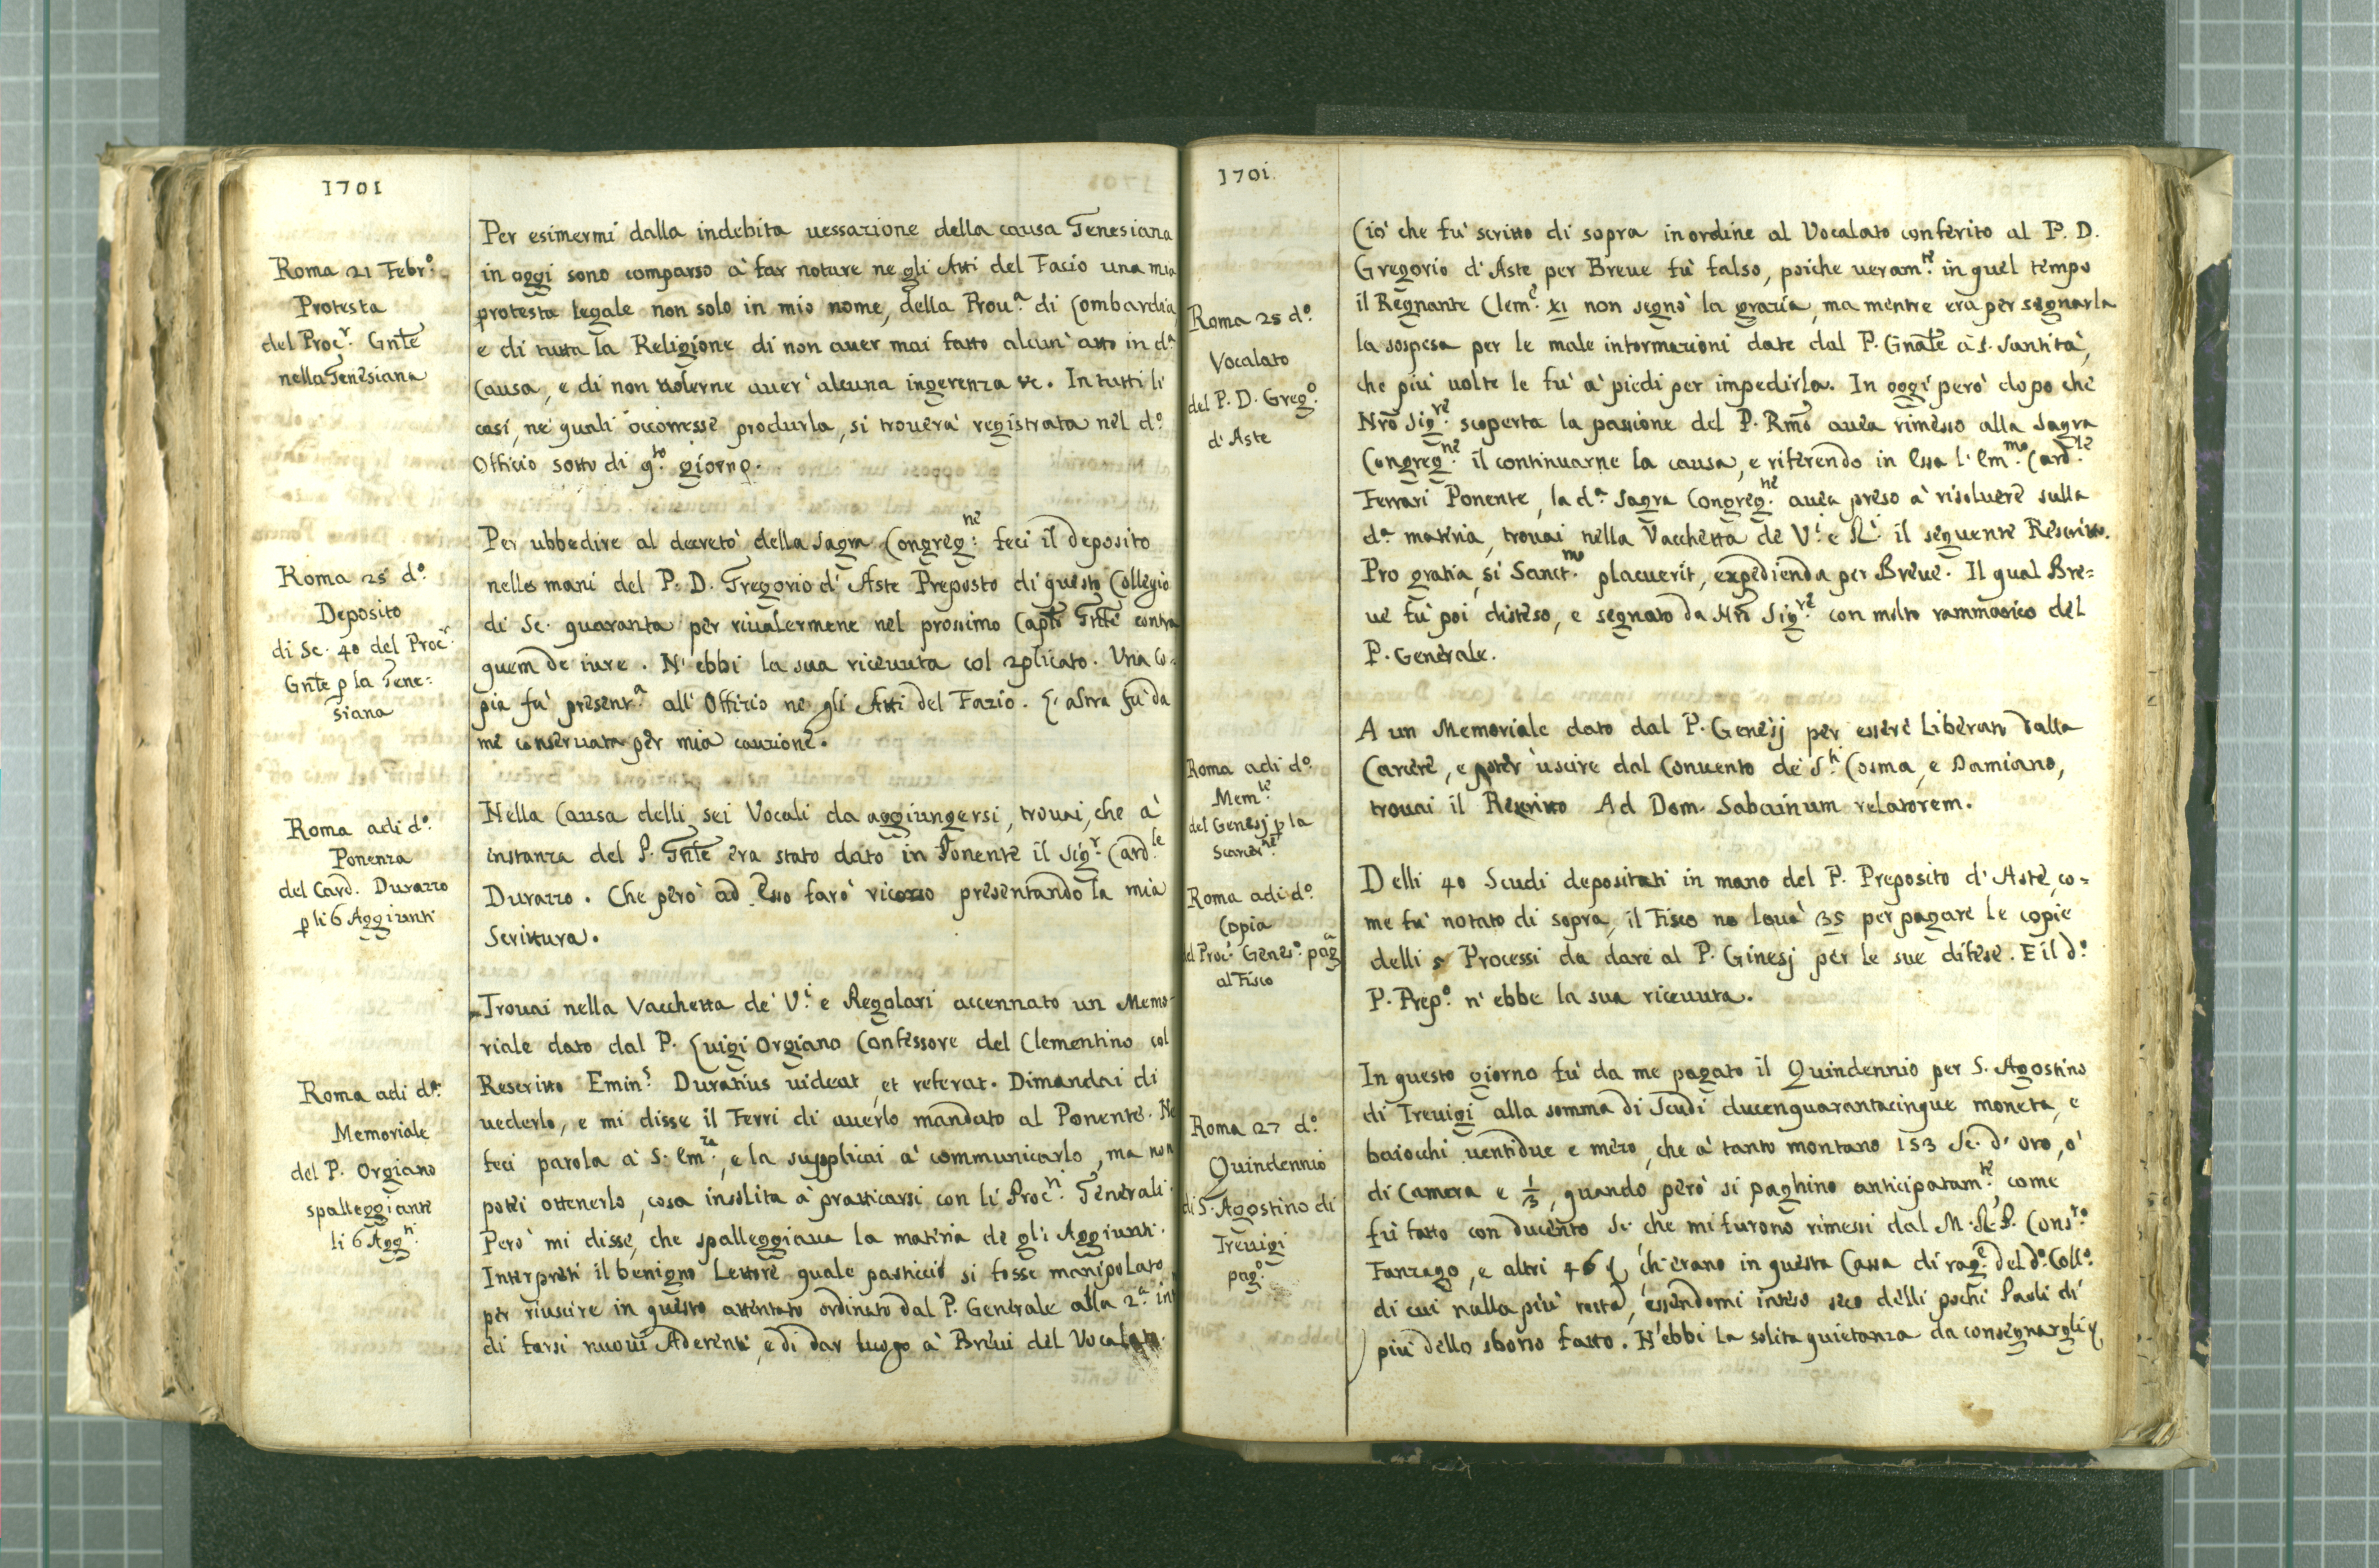 1701
Roma 21 Febr.º
Protesta
del Proc.r Gnte
nella Genesiana
Per esimermi dalla indebita uessazione della causa Genesiana
in oggi sono comparso à far notare ne gli Atti del Facio una mia
protesta legale non solo in mio nome, della Prou.a di Lombardia
e di tutta la Religione di non auer mai fatto alcun' atto in d.a
Causa, e di non uolerne auer' alcuna ingerenza &c. In tutti li
casi, ne' quali occorresse produrla, si trouerà registrata nel d.º
Officio sotto di q.to giorno.
Roma 25 d.º
Deposito
di Sc. 40 del Proc.r
Gnte p la Gene=
siana
Per ubbedire al decreto della Sagra Congreg.ne feci il deposito
nelle mani del P. D. Gregorio d'Aste Preposto di questo Collegio
di Sc. quaranta per riualermene nel prossimo Capto Gnte contra
quem de iure. N'ebbi la sua riceuuta col 2plicato. Una co=
pia fù present.a all'Offizio ne gli Atti del Fazio. L'altra fù da
me conseruata per mia cauzione.
Roma adi d.º
Ponenza
del Card. Durazzo
p li 6 Aggiunti
Nella Causa delli sei Vocali da aggiungersi, trouai, che à
instanza del P. Gnte era stato dato in Ponente il Sig.r Card.le
Durazzo. Che però ad Esso farò ricorso presentando la mia
Scrittura.
Roma adi d.º
Memoriale
del P. Orgiano
spalleggiante
li 6 Agg.ti
Trouai nella Vacchetta de' V.i e Regolari accennato un Memo-
riale dato dal P. Luigi Orgiano Confessore del Clementino col
Rescritto Emin.s Duratius uideat, et referat. Dimandai di
uederlo, e mi disse il Ferri di auerlo mandato al Ponente. Ne
feci parola à S. Em.za, e la supplicai à communicarlo, ma non
potei ottenerlo, cosa insolita à pratticarsi con li Proc.ri Generali.
Però mi disse, che spalleggiaua la materia de gli Aggiunti.
Interpreti il benigno Lettore quale pasticcio si fosse manipolato
per riuscire in questo attentato ordinato dal P. Generale alla 2.a
di farsi nuoui Aderenti, e di dar luogo à Breui del Vocalato.
1701
Roma 25 d.º
Vocalato
del P. D. Greg.º
d'Aste
Ciò che fù scritto di sopra in ordine al Vocalato conferito al P. D.
Gregorio d'Aste per Breue fù falso, poiche ueram.te in quel tempo
il Regnante Clem.e XI non segnò la grazia, ma mentre era per segnarla
la sospesa per le male informazioni date dal P. Gnale à S. Santità,
che più uolte le fù à piedi per impedirla. In oggi però dopo che
Nrõ Sig.re scoperta la passione del P. Rmo auea rimesso alla Sagra
Congreg.ne il continuarne la causa, e riferendo in Essa l'Em.mo Card.le
Ferrari Ponente, la d.a Sagra Congreg.ne auea preso à risoluere sulla
d.a materia, trouai nella Vacchetta de V.i e R.i il seguente Rescritto.
Pro gratia, si Sanct.mo placuerit, expedienda per Breue. Il qual Bre=
ue fù poi disteso, e segnato da Nrõ Sig.re con molto rammarico del
P. Generale.
Roma adi d.º
Mem.le
del Genesj p la
Scarcer.ne
A un Memoriale dato dal P. Genesj per essere liberato dalla
Carcere, e poter uscire dal Conuento de' S.ti Cosma, e Damiano,
trouai il Rescritto Ad Dom. Sabcuinum relatorem.
Roma adi d.º
Copia
d Proc. Genes.º pag.a
al Fisco
Delli 40 Scudi depositati in mano del P. Preposito d'Aste, co=
me fù notato di sopra, il Fisco ne leuà 35 per pagare le copie
delli Processi da dare al P. Ginesj per le sue difese. E il d.º
P. Prep.º n'ebbe la sua riceuuta.
Roma 27 d.º
Quindennio
di S. Agostino di
Treuigi
pag.º
In questo giorno fù da me pagato il Quindennio per S. Agostino
di Treuigi alla somma di Scudi ducenquarantacinque moneta, e
baiocchi uentidue e mezo, che à tanto montano 153 Sc. d'oro, ò
di Camera e 1/3, quando però si paghino anticipatam.te, come
fù fatto con ducento Sc. che mi furono rimessi dal M. R. P. Cons.ro
Fanzago, e altri 46 ch'erano in questa Cassa di rag.e del d.º Coll.º
di cui nulla più resta, essendomi inteso seco delli pochi Paoli di
più dello sborso fatto. N'ebbi la solita quietanza da consegnargli